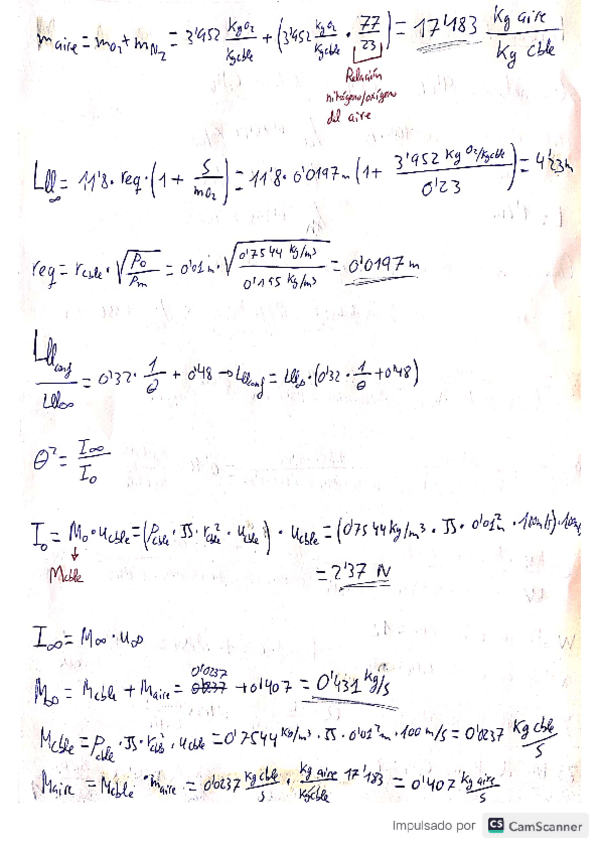 m aire = mO₂ + mN₂ = 3'952 KgO₂/Kgcble + (3'952 KgO₂/Kgcble · 77/23) = 17'183 Kg aire/Kg cble
Relación
nitrógeno/oxígeno
del aire
Lll∞ = 11'8 · req · (1 + S/mO₂) = 11'8 · 0'0197 m (1 + 3'952 Kg O₂/Kgcble / 0'23) = 4'23m
req = rcble · √(ρo/ρm) = 0'01m · √(0'7544 Kg/m³ / 0'195 Kg/m³) = 0'0197 m
Lllconf/Lll∞ = 0'32 · 1/θ + 0'48 → Lllconf = Lll∞ · (0'32 · 1/θ + 0'48)
θ² = I∞/I₀
I₀ = M₀ · ucble = (ρcble · π · rcble² · ucble) · ucble = (0'7544 Kg/m³ · π · 0'01²m · 100m/s) · 100m/s
Mcble
= 2'37 N
I∞ = M∞ · u∞
0'0237
M∞ = Mcble + Maire = + 0'407 = 0'431 Kg/s
Mcble = ρcble · π · rcble² · ucble = 0'7544 Kg/m³ · π · 0'01²m · 100 m/s = 0'0237 Kg cble/s
Maire = Mcble · maire = 0'0237 Kg cble/s · Kg aire/Kgcble 17'183 = 0'407 Kg aire/s
Impulsado por CS CamScanner